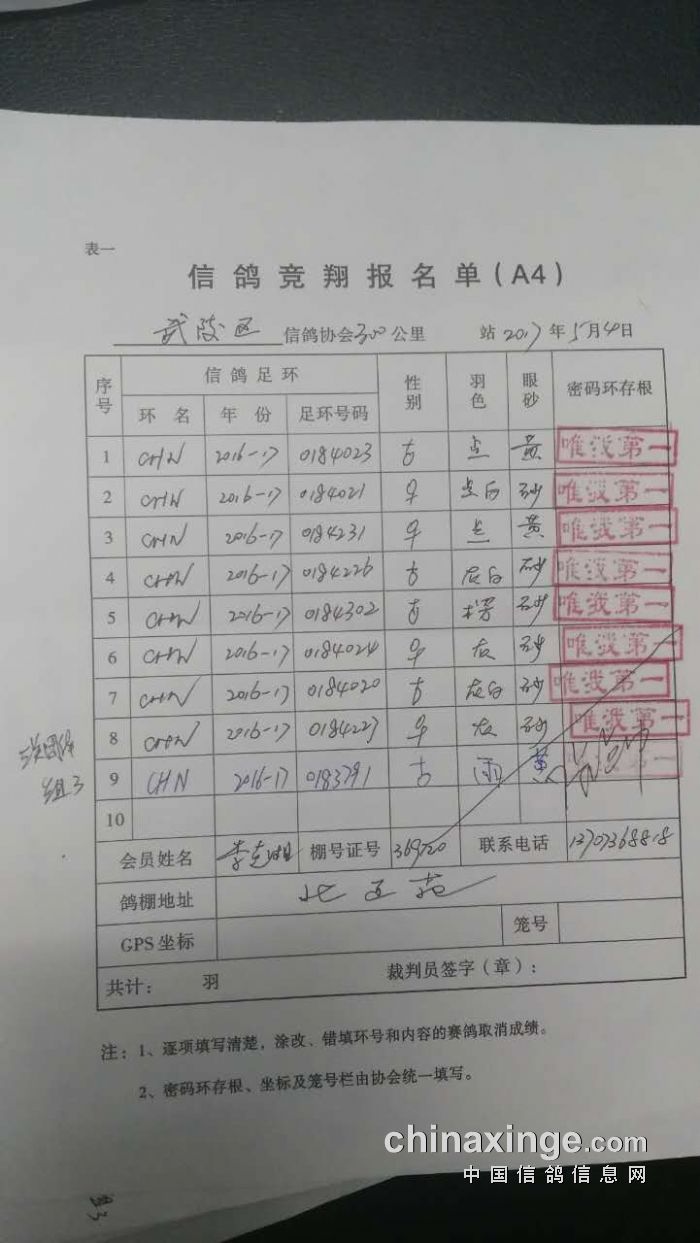 表一
信鸽竞翔报名单（A4）
武陵区 信鸽协会300公里 站 2017年5月4日
序号 信鸽足环 性别 羽色 眼砂 密码环存根
环名 年份 足环号码
1 CHN 2016-17 0184023 点 黄 唯我第一
2 CHN 2016-17 0184021 点白 砂 唯我第一
3 CHN 2016-17 0184231 点 黄 唯我第一
4 CHN 2016-17 0184226 灰白 砂 唯我第一
5 CHN 2016-17 0184302 砂 唯我第一
6 CHN 2016-17 0184024 灰 砂 唯我第一
7 CHN 2016-17 0184020 灰白 砂 唯我第一
8 CHN 2016-17 0184227 灰 砂 唯我第一
9 CHN 2016-17 0183791 雨 黄 唯我第一
10
会员姓名 棚号证号 369720 联系电话 13707368818
鸽棚地址
GPS坐标 笼号
共计： 羽 裁判员签字（章）：
注：1、逐项填写清楚，涂改、错填环号和内容的赛鸽取消成绩。
2、密码环存根、坐标及笼号栏由协会统一填写。
chinaxinge.com
中国信鸽信息网